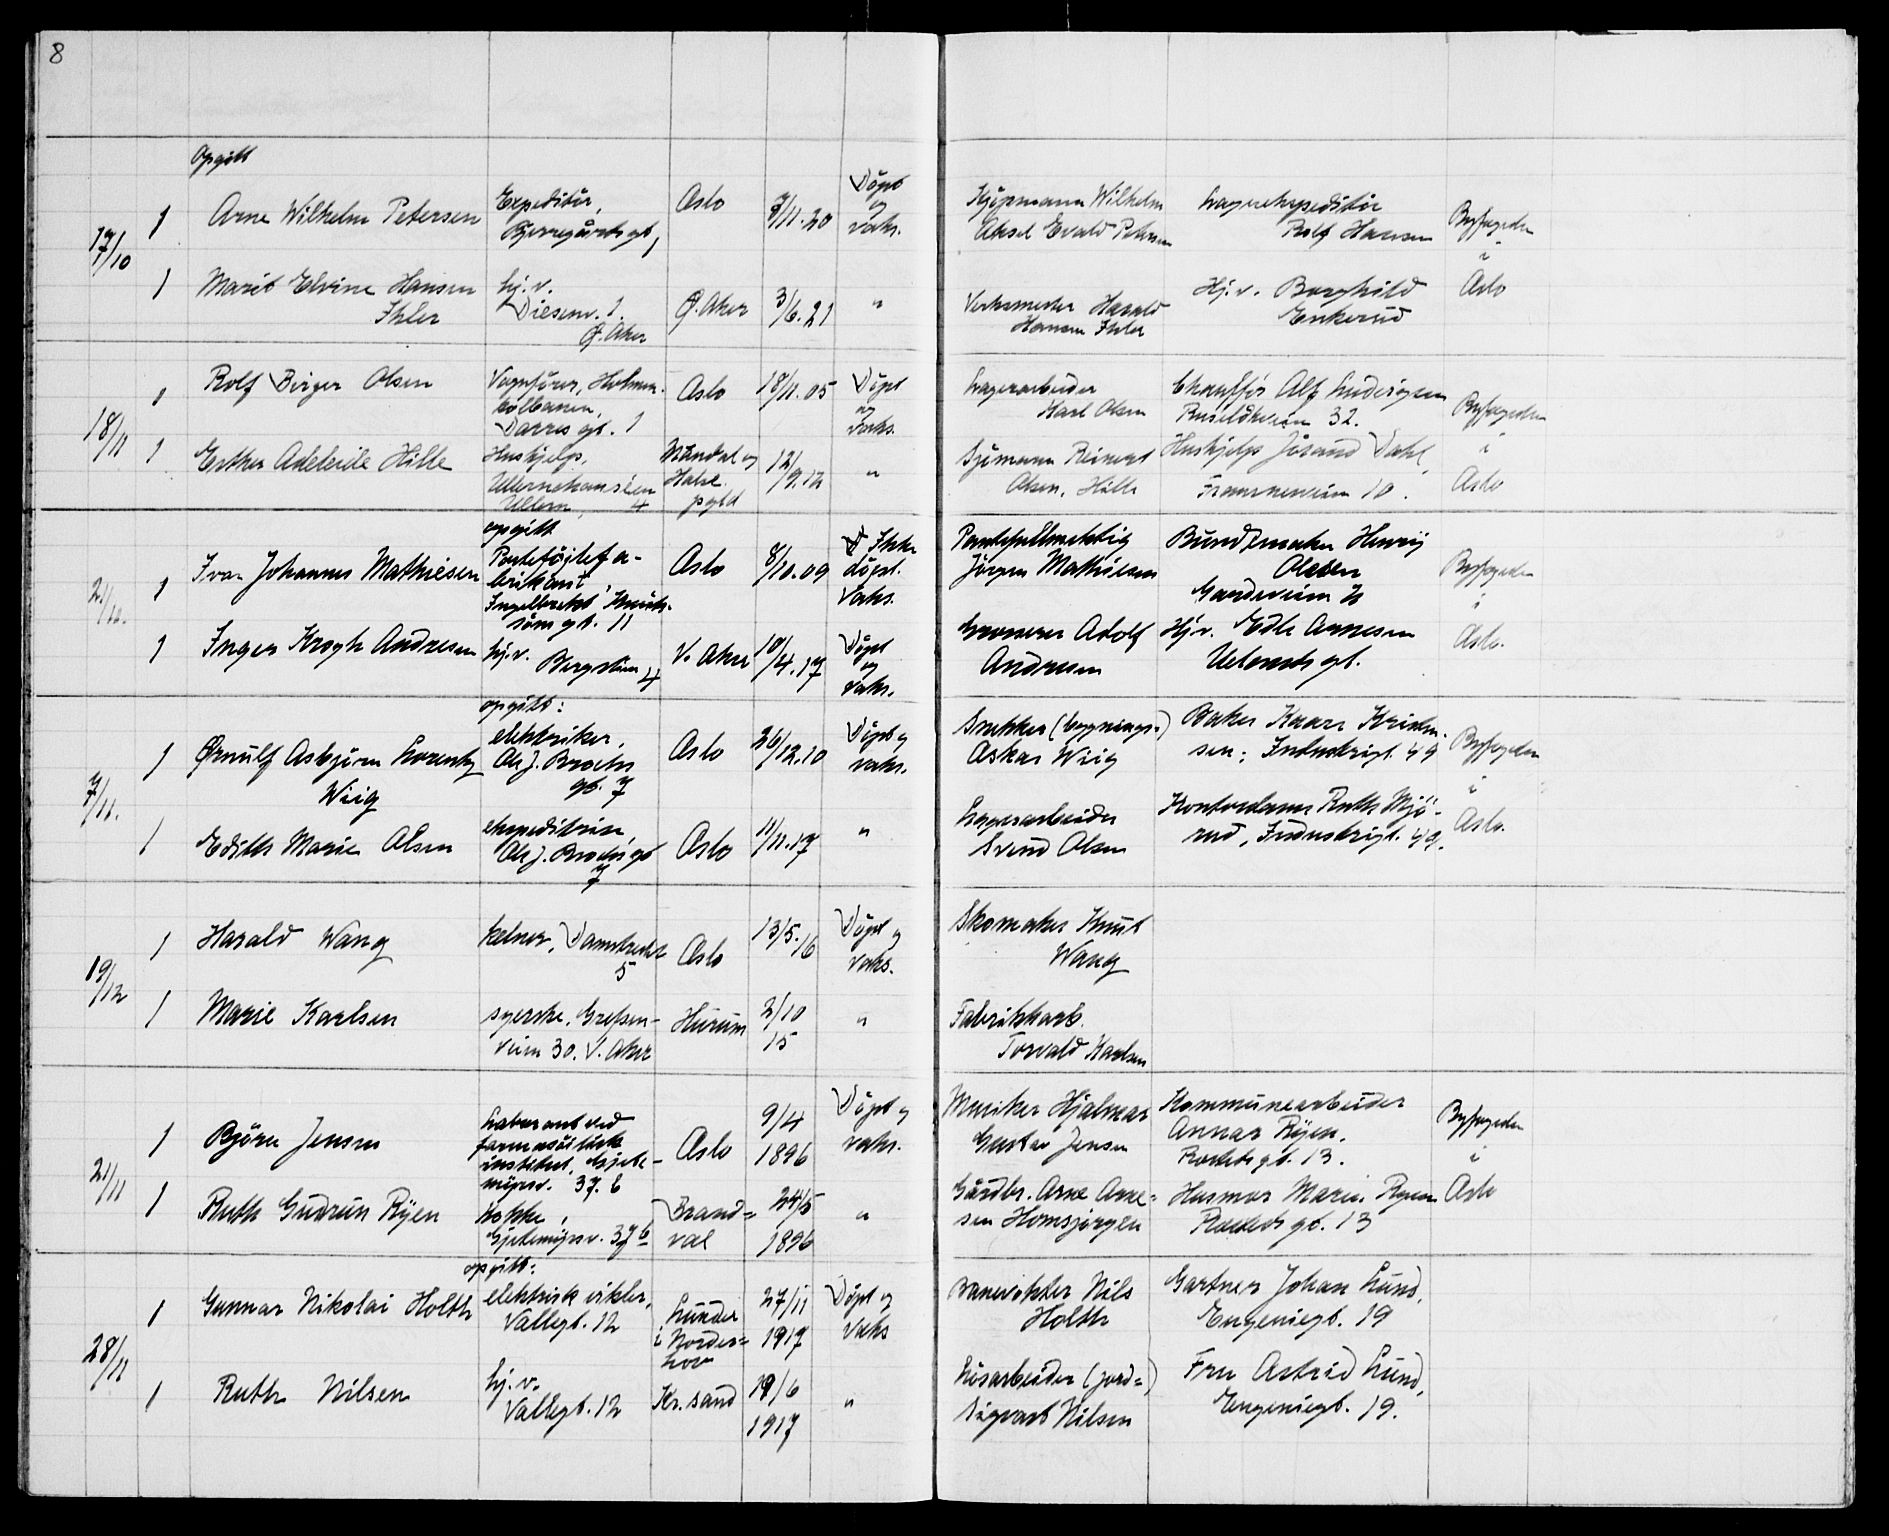 8
Opgitt
17/10
1 Arne Wilhelm Petersen
Expeditör,
Bjerregårds gt,
Oslo
8/11.20
Döpt
og
vaks.
Kjöpmann Wilhelm
Aksel Evald Petersen
Lagerekspeditör
Rolf Hansen
Byfogden
i
Oslo
1 Marit Elvine Hansen
Ihler
hj. v.
Diesenv. 1.
Ø. Aker
Ø. Aker
3/6.21
"
Verksmester Harald
Hansen Ihler
Hj. v. Borghild
Enkerud
18/11
1 Rolf Birger Olsen
Vognförer, Holmen-
kolbanen,
Darres gt. 1
Oslo
18/11.05
Döpt
og
vaks.
Lagerarbeider
Karl Olsen
Chaufför Alf Ludvigsen
Ruseldkveien 32.
Byfogden
i
Oslo
1 Esther Adeleide Hille
Hushjelp,
Ullernchausséen
Ullern, 4
Mandal og
Halse
pgld
12/9.12
"
Sjömann Reinert
Olsen, Hille
Hushjelp Jörand Dahl
Framnesveien 10.
2/12.
opgitt
1 Ivar Johannes Mathiesen
Porteföjlefa-
brikant
Ingelbrekt Knuds-
söns gt. 11
Oslo
8/10.09
Ikke
döpt.
Vaks.
Pantefullmektig
Jörgen Mathiesen
Bundtmaker Henry
Olsen
Byfogden
i
Oslo.
1 Inger Krogh Andresen
hj. v.
Bergslien 4
V. Aker
10/4.17
Döpt
og
vaks.
Grosserer Adolf
Andresen
Hj. v. Edle Arnesen
Uelands gt.
7/11.
opgitt:
1 Ørnulf Asbjörn Lorentz
Wiig
elektriker,
Ole J. Brochs
gt. 7
Oslo
26/12.10
Döpt og
vaks.
Snekker (bygnings-)
Oskar Wiig
Baker Kaare Kristen-
sen, Industrigt. 49
Byfogden
i
Oslo.
1 Edith Marie Olsen
ekspeditrise,
Ole J. Brochs gt
7
Oslo
11/11.17
"
Lagerarbeider
Svend Olsen
Kontordame Ruth Mjö-
rud, Industrigt. 49.
19/12
1 Harald Wang
kelner, Damstredet
5
Oslo
13/5.16
Döpt og
vaks.
Skomaker Knut
Wang
1 Marie Karlsen
syerske, Grefsen-
veien 30. V. Aker
Hurum
2/10
15
"
Fabrikkarb.
Torvald Karlsen
21/11
1 Björn Jensen
Laborant ved
farmasöitisk
institut, Gjete-
myrsv. 37. b
Oslo
9/4
1896
Döpt og
vaks.
Musiker Hjalmar
Gustav Jensen
Kommunearbeider
Annar Ryen.
Rodes gt. 13.
Byfogden
i
Oslo
1 Ruth Gudrun Ryen
kokke,
Gjetemyrsv. 37 b
Brand=
val
24/5
1896
"
Gårdbr. Arne Arne=
sen Homsjörgen
Husmor Marie Ryen
Rodes gt. 13
28/11
opgitt:
1 Gunnar Nikolai Holth
elektrisk vikler,
Vallegt. 12
Lunder
i Norder=
hov
27/11
1917
Döpt og
Vaks
Banevokter Nils
Holth
Gartner Johan Lund,
Eugeniegt. 19
1 Ruth Nilsen
hj. v.
Vallegt. 12
Kr. sand
19/6
1917
"
Lösarbeider (jord=)
Sigvart Nilsen
Fru Astrid Lund,
Eugeniegt. 19.